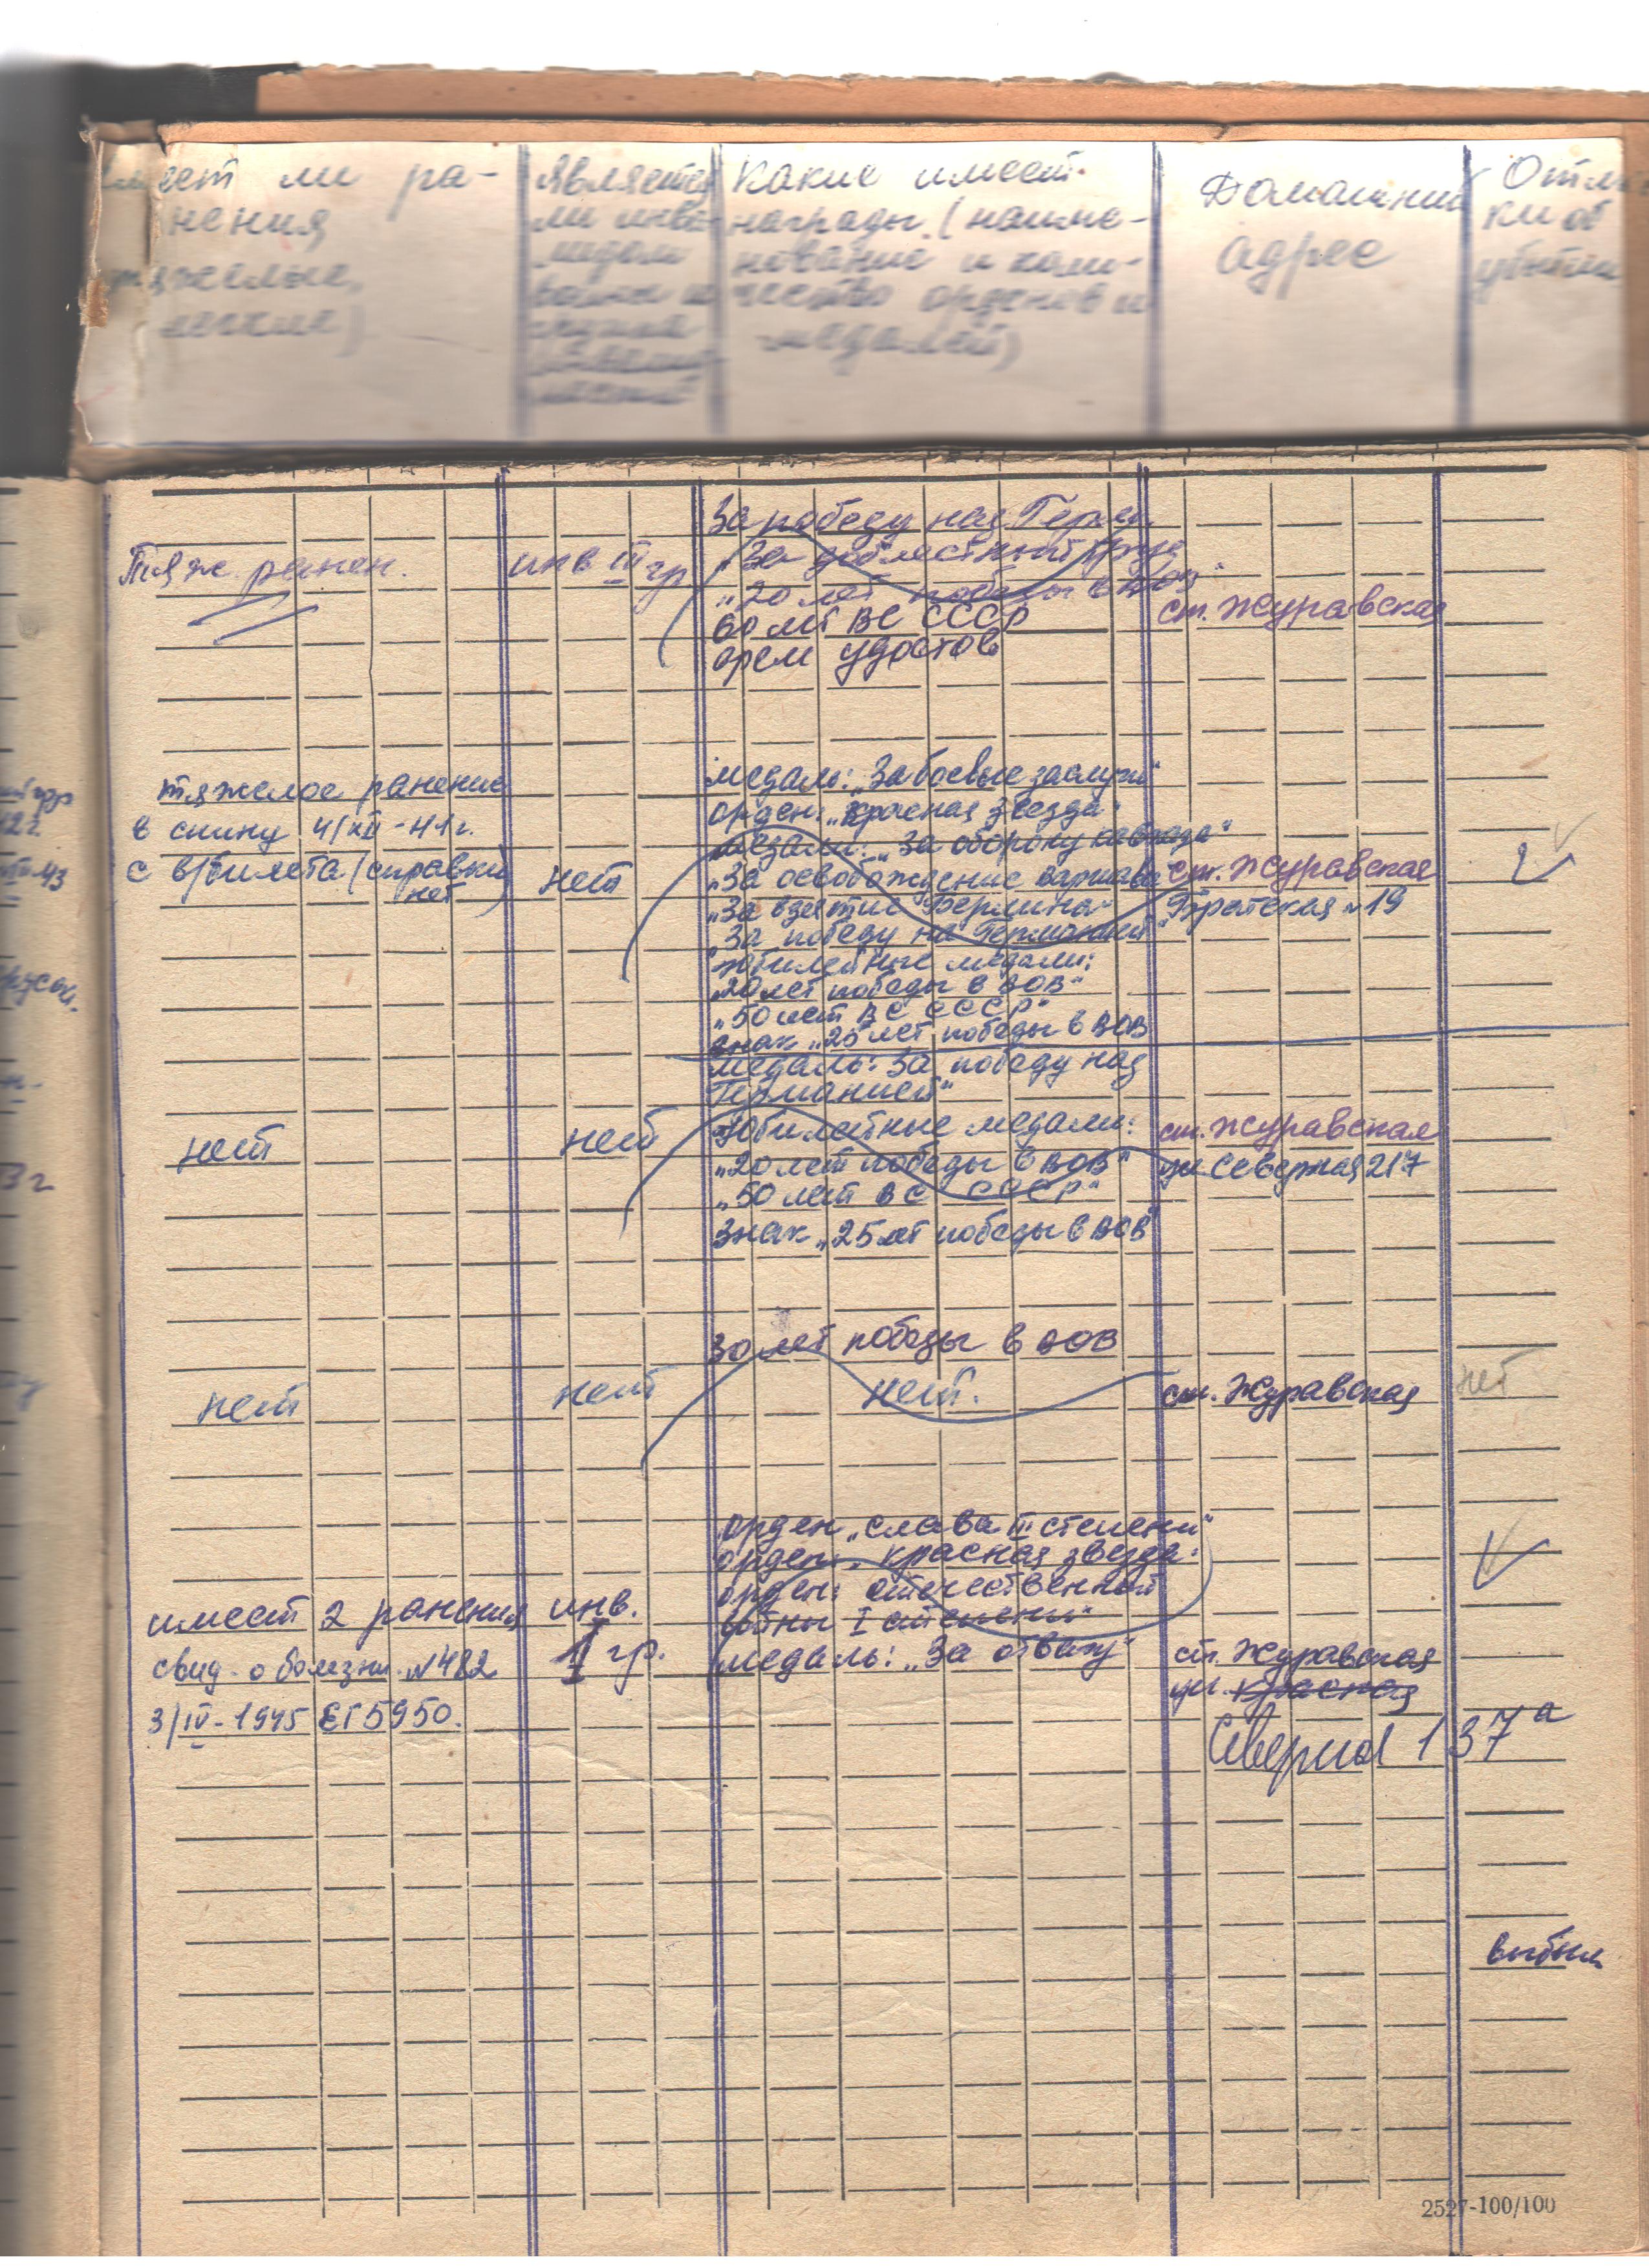 ест ли ра-
нения
тяжелые,
легкие)
является
ли инва-
лидом
войны и
группа
Какие имеет
награды (наиме-
нование и коли-
чество орденов и
медалей)
Домашний
адрес
Отм
ки об
убытии
Тяж. ранен.
инв III гр
За победу над Герм.
"За доблестный труд
"20 лет победы в ВОВ"
60 лет ВС СССР
орем удостов
ст. Журавская
тяжелое ранение
в спину 4/XII-41г.
с в/билета (справки
нет)
нет
медаль: "За боевые заслуги"
орден: "Красная звезда"
медали: "За оборону кавказа"
"За освобождение варшавы
"За взятие Берлина"
"За победу на Германией"
юбилейные медали:
"20 лет победы в ВОВ"
"50 лет ВС СССР"
знак "25 лет победы в ВОВ
ст. Журавская
Братская №19
нет
нет
медаль: За победу над
Германией"
юбилейные медали:
"20 лет победы в ВОВ"
"50 лет ВС СССР"
знак "25 лет победы в ВОВ"
ст. Журавская
ул. Северная 217
нет
нет
30 лет победы в ВОВ
нет.
ст. Журавская
нет
имеет 2 ранения
свид. о болезни №482
3/IV-1945 ЕГ5950.
инв.
1 гр.
орден "слава III степени"
орден "красная звезда"
орден: отечественной
войны I степени"
медаль: "За отвагу"
ст. Журавская
ул. Красная
Северная 137а
выбыл
12г.
43
3г
2527-100/100